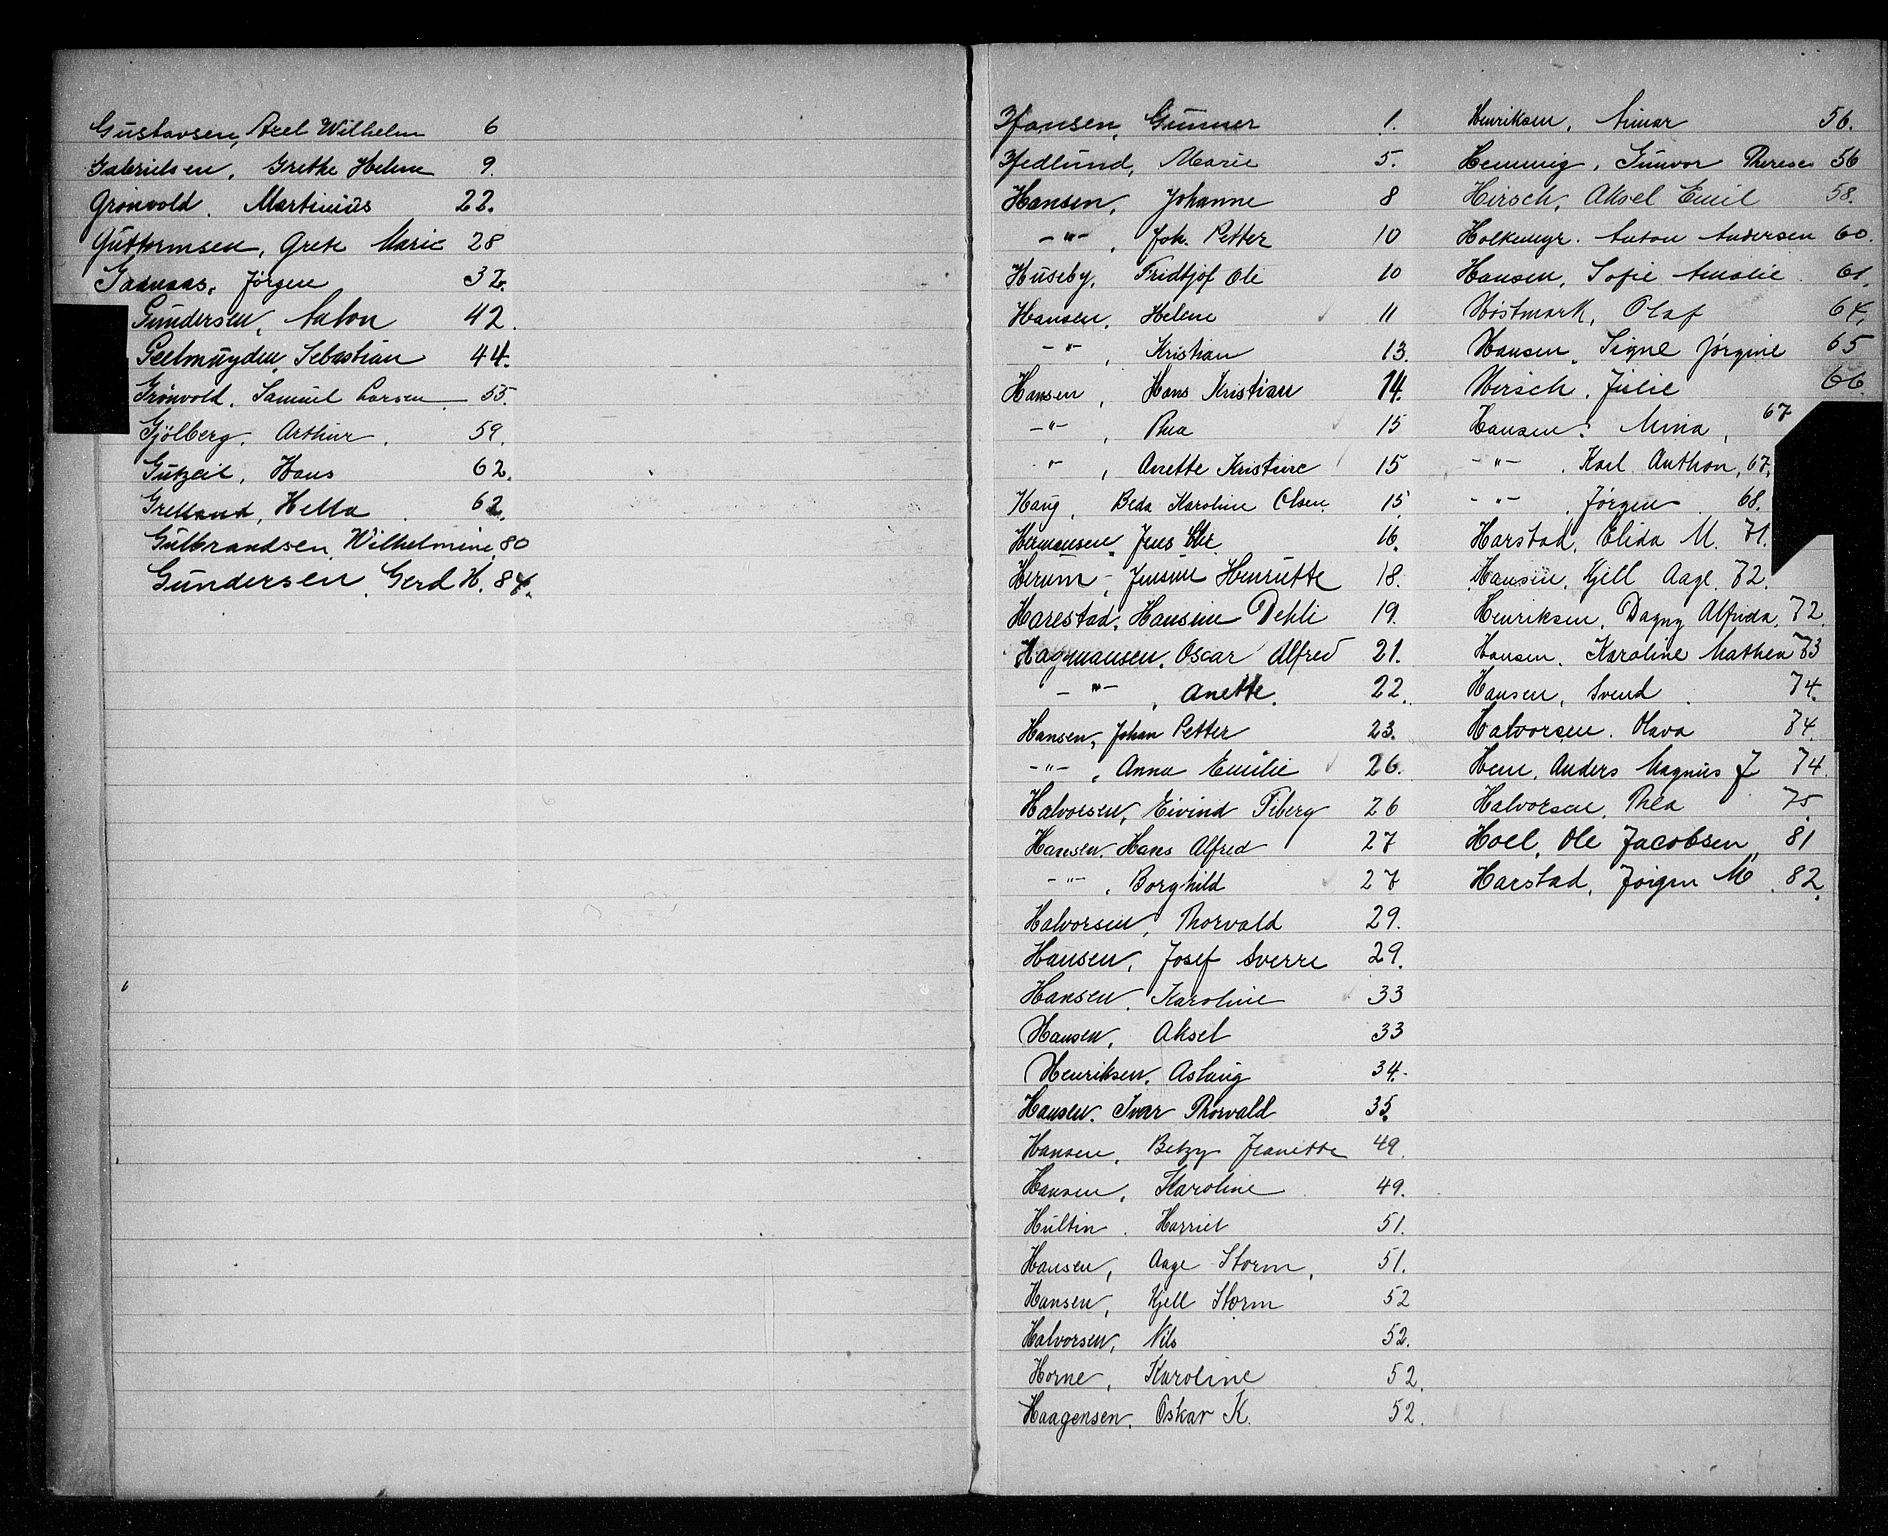 Gustavsen, Axel Wilhelm 6
Gabrielsen, Grethe Helene 9.
Grønvold. Martinius 22.
Guttormsen, Grete Marie 28
Jørgen 32.
Gundersen, Anton 42.
Geelmuyden, Sebastian 44.
Grønvold. Samuel Larsen 55.
Gjölberg. Arthur. 59.
Gutzeit, Hans 62.
Grelland, Hella 62.
Gulbrandsen, Wilhelmine, 80
Gundersen, Gerd H. 84.
Hansen, Gunner 1.
Hedlund, Marie 5.
Hansen, Johanne 8
-"-, Joh. Petter 10
Huseby, Fridtjof Ole 10
Hansen, Helene 11
-"-, Kristian 13.
Hansen, Hans Kristian 14.
-"-, Thea 15
" , Anette Kristine 15
Haug, Beda Karoline Olsen. 15.
Hermansen, Jens Chr 16.
Herum, Jensine Henriette 18.
Harestad, Hansine Dehli 19.
Hagmansen, Oscar Alfred 21.
-"-, Anette. 22.
Hansen, Johan Petter 23.
-"-, Anna Emilie 26.
Halvorsen, Eivind Fiberg 26
Hansen. Hans Alfred 27
-"-, Borghild 27
Halvorsen, Thorvald 29.
Hansen, Josef Sverre 29.
Hansen, Karoline 33
Hansen, Aksel 33
Henriksen, Aslaug 34.
Hansen. Ivar Thorvald 35.
Hansen, Betzy Jeanette 49.
Hansen, Karoline 49.
Hultin. Harriet 51.
Hansen, Aage Storm, 51.
Hansen, Kjell Storm 52
Halvorsen, Nils 52.
Horne, Karoline 52.
Haagensen, Oskar K. 52.
Henriksen, Aimar 56.
Hemmig, Gunvor Therese 56
Hirsch, Aksel Emil 58.
Holkemyr. Anton Andersen 60.
Hansen, Sofie Amalie. 61.
Høstmark, Olaf 64.
Hansen, Signe Jørgine 65
Hersch, Julie 66.
Hansen, Mina, 67
-"-, Karl Anthon, 67.
-"-, Jørgen 68.
Harstad, Elida M. 71.
Hansen, Kjell Aage. 72.
Henriksen, Dagny Alfrida, 72.
Hansen, Karoline Mathea 73
Hansen, Svend 74.
Halvorsen. Olava 74.
Hem, Anders Magnus J 74.
Halvorsen, Thea 75.
Hoel, Ole Jacobsen, 81
Harstad, Jørgen M. 82.